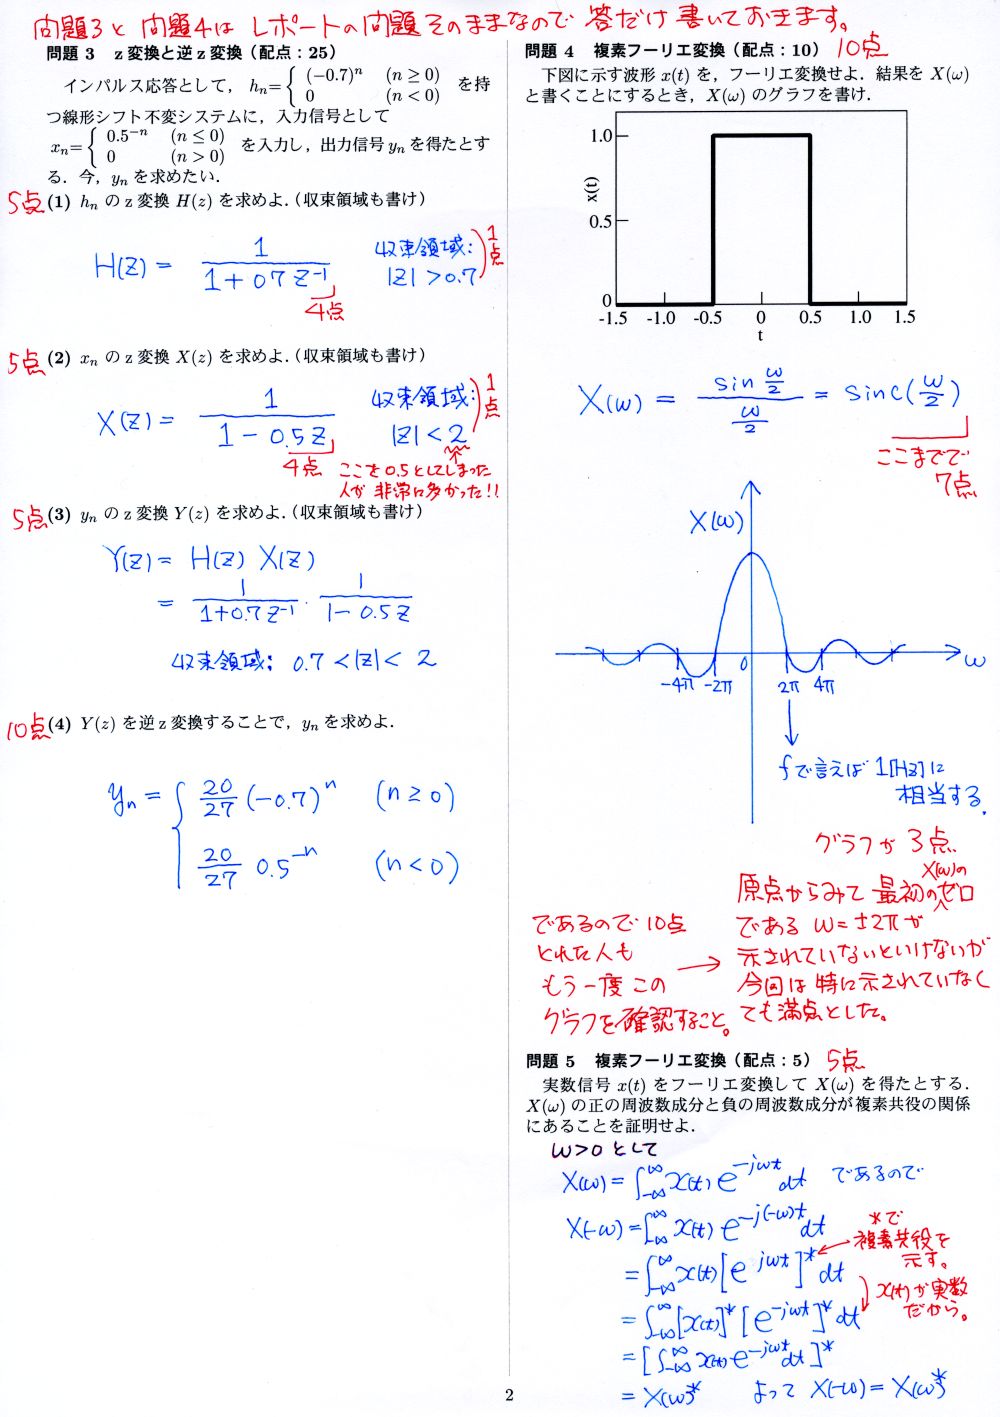 問題3と問題4はレポートの問題そのままなので答だけ書いておきます。
問題 3　z 変換と逆 z 変換（配点：25）
インパルス応答として，h_n= { (−0.7)^n (n ≥ 0)
0 (n < 0) を持
つ線形シフト不変システムに，入力信号として
x_n= { 0.5^{−n} (n ≤ 0)
0 (n > 0) を入力し，出力信号 y_n を得たとす
る．今，y_n を求めたい．
5点 (1) h_n の z 変換 H(z) を求めよ．（収束領域も書け）
H(z) = 1 / (1 + 0.7 z^{-1})
4点
収束領域:
|z| > 0.7
1点
5点 (2) x_n の z 変換 X(z) を求めよ．（収束領域も書け）
X(z) = 1 / (1 − 0.5z)
4点
収束領域:
|z| < 2
1点
ここを0.5としてしまった
人が非常に多かった!!
5点 (3) y_n の z 変換 Y(z) を求めよ．（収束領域も書け）
Y(z) = H(z) X(z)
= 1 / (1+0.7z^{-1}) · 1 / (1−0.5z)
収束領域: 0.7 < |z| < 2
10点 (4) Y(z) を逆 z 変換することで，y_n を求めよ．
y_n = { 20/27 (−0.7)^n (n ≥ 0)
20/27 0.5^{−n} (n < 0)
問題 4　複素フーリエ変換（配点：10） 10点
下図に示す波形 x(t) を，フーリエ変換せよ．結果を X(ω)
と書くことにするとき，X(ω) のグラフを書け．
1.0
x(t)
0.5
0
-1.5 -1.0 -0.5 0 0.5 1.0 1.5
t
X(ω) = sin ω/2 / ω/2 = sinc(ω/2)
ここまでで
7点
X(ω)
-4π -2π 0 2π 4π ω
fで言えば 1[Hz]に
相当する.
グラフが 3点
原点からみて最初のX(ω)のゼロ
である ω=±2πが
示されていないといけないが
今回は特に示されていなく
ても満点とした。
であるので 10点
とれた人も
もう一度この
グラフを確認すること。
問題 5　複素フーリエ変換（配点：5） 5点
実数信号 x(t) をフーリエ変換して X(ω) を得たとする．
X(ω) の正の周波数成分と負の周波数成分が複素共役の関係
にあることを証明せよ．
ω>0 として
X(ω) = ∫_{-∞}^{∞} x(t) e^{-jωt} dt であるので
X(-ω) = ∫_{-∞}^{∞} x(t) e^{-j(-ω)t} dt
= ∫_{-∞}^{∞} x(t) [e^{-jωt}]^* dt
*で
複素共役を
示す。
= ∫_{-∞}^{∞} [x(t)]^* [e^{-jωt}]^* dt
x(t)が実数
だから。
= [∫_{-∞}^{∞} x(t) e^{-jωt} dt]^*
= X(ω)^* よって X(-ω) = X(ω)^*
2